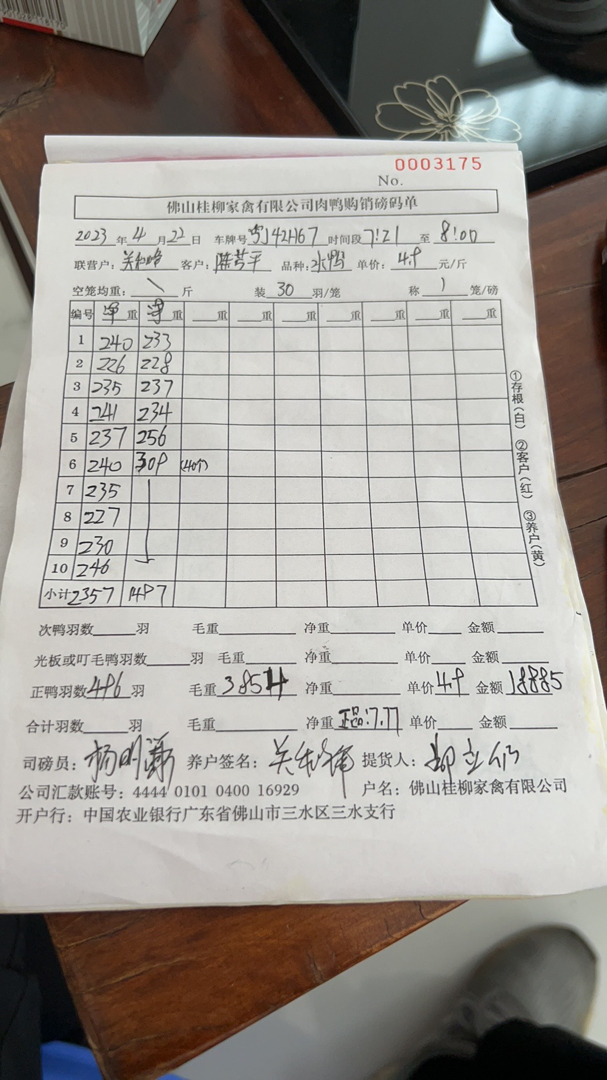 0003175
No.
佛山桂柳家禽有限公司肉鸭购销磅码单
2023年4月22日 车牌号粤J42H67 时间段7:21至8:00
联营户: 客户: 品种:水鸭 单价:4.9元/斤
空笼均重:\斤 装30羽/笼 称1笼/磅
编号 净重 净重 重 重 重 重 重 重
1 240 233
2 226 228
3 235 237
4 241 234
5 237 256
6 240 309 (40个)
7 235
8 227
9 230
10 246
小计 2357 1497
①存根(白) ②客户(红) ③养户(黄)
次鸭羽数 羽 毛重 净重 单价 金额
光板或叮毛鸭羽数 羽 毛重 净重 单价 金额
正鸭羽数496羽 毛重3854 净重 单价4.9 金额18885
合计羽数 羽 毛重 净重 正品:7.77 单价 金额
司磅员: 养户签名: 提货人:
公司汇款账号:4444 0101 0400 16929 户名:佛山桂柳家禽有限公司
开户行:中国农业银行广东省佛山市三水区三水支行